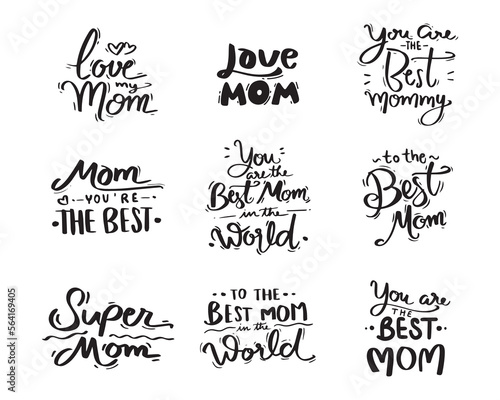 love
my
Mom
Love
MOM
You Are
THE
Best
Mommy
Mom
YOU'RE
THE BEST
You
are the
Best Mom
in the
World
to the
Best
Mom
Super
Mom
TO THE
BEST MOM
in the
World
You are
THE
BEST
MOM
Adobe Stock | #564169405